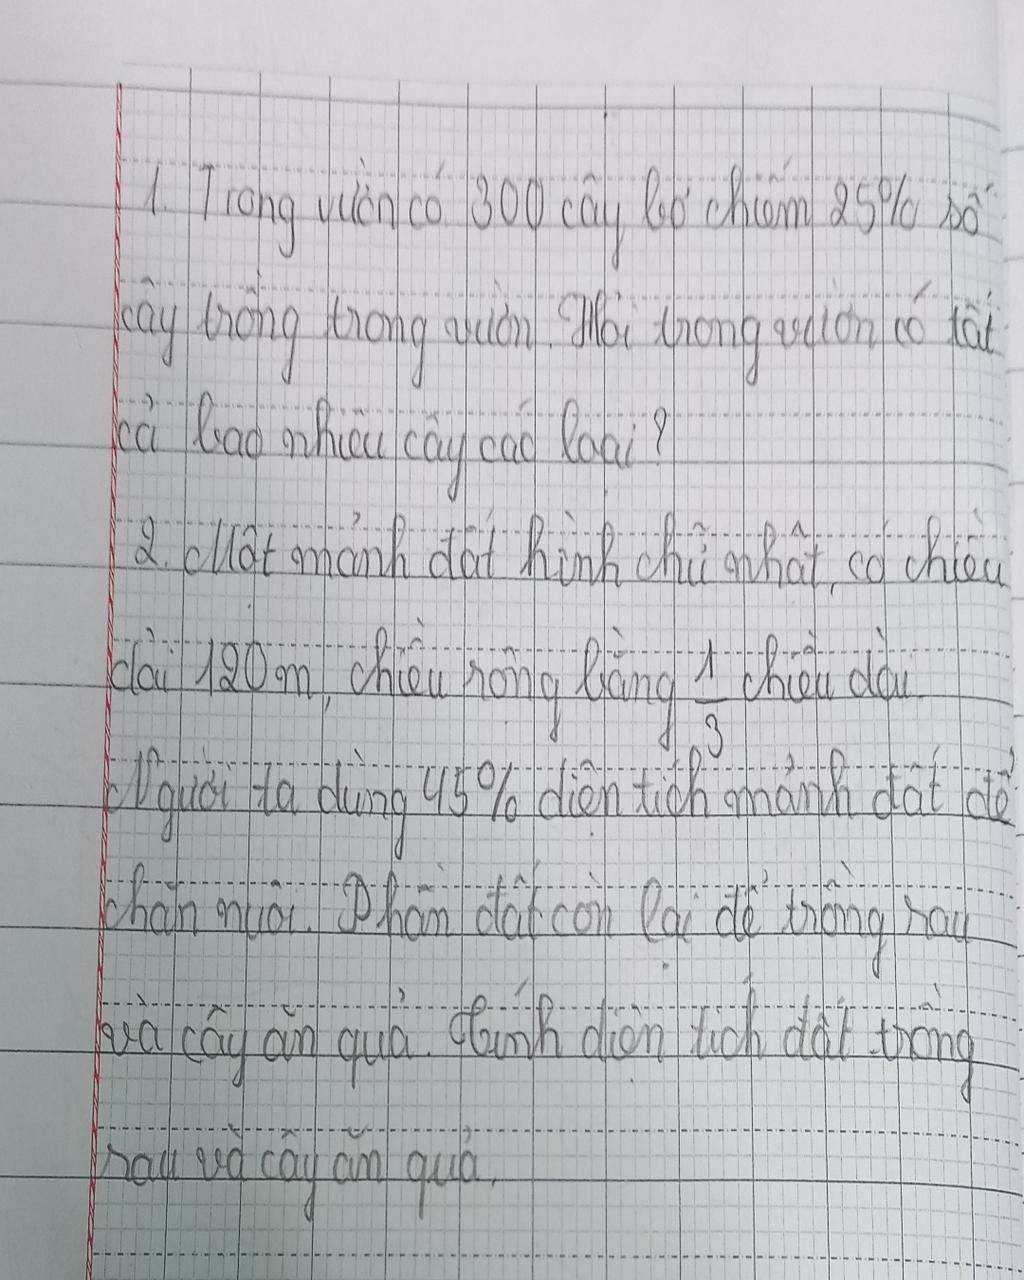 1. Trong vườn có 300 cây bơ chiếm 25% số
cây trồng trong vườn. Hỏi trong vườn có tất
cả bao nhiêu cây các loại?
2. Một mảnh đất hình chữ nhật, có chiều
dài 120m, chiều rộng bằng 1/3 chiều dài.
Người ta dùng 45% diện tích mảnh đất để
chăn nuôi. Phần đất còn lại để trồng rau
và cây ăn quả. Tính diện tích đất trồng
rau và cây ăn quả.